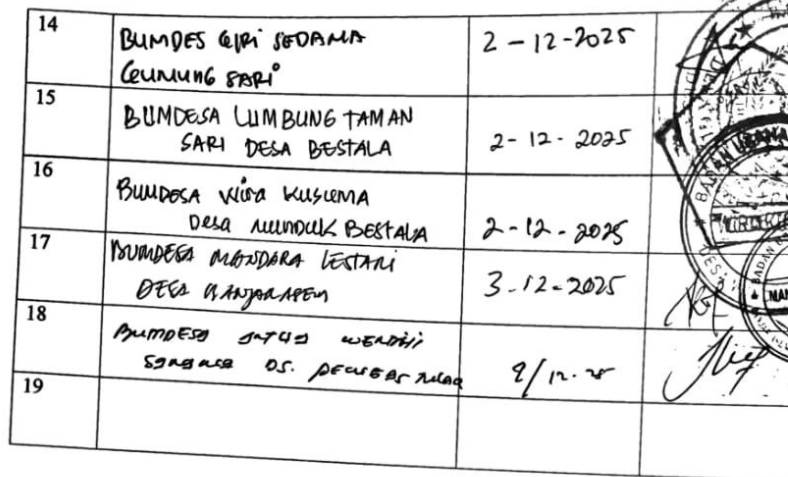 14
BUMDES GIRI SEDANA
GUNUNG SARI
2-12-2025
15
BUMDESA LUMBUNG TAMAN
SARI DESA BESTALA
2-12-2025
16
BUMDESA Wira KUSUMA
Desa MUNDUK BESTALA
2-12-2025
17
BUMDESA MANDARA LESTARI
DESA BANJARASEM
3-12-2025
18
BUMDESA
DS.
19
BADAN USAHA
BADAN